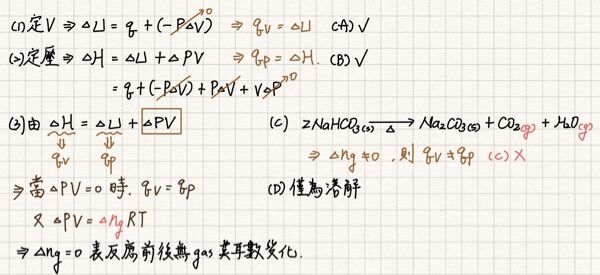 (1) 定V ⇒ △U = q + (-P△V)⁰ ⇒ qv = △U (A) ✓
(2) 定壓 ⇒ △H = △U + △PV ⇒ qp = △H. (B) ✓
= q + (-P△V) + P△V + V△P⁰
(3) 由 △H = △U + △PV
⇓ ⇓
qv qp
⇒ 當 △PV = 0 時, qv = qp
又 △PV = △ng RT
⇒ △ng = 0 表反應前後無 gas 莫耳數變化.
(C) 2NaHCO3(s) →△ Na2CO3(s) + CO2(g) + H2O(g)
⇒ △ng ≠ 0, 則 qv ≠ qp (C) X
(D) 僅為溶解